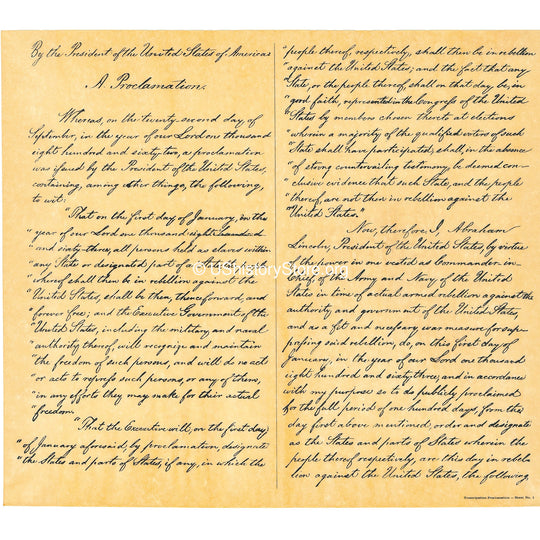 By the President of the United States of America:
A Proclamation.
Whereas, on the twenty-second day of
September, in the year of our Lord one thousand
eight hundred and sixty-two, a proclamation
was issued by the President of the United States,
containing, among other things, the following,
to wit:
"That on the first day of January, in the
"year of our Lord one thousand eight hundred
"and sixty-three, all persons held as slaves within
"any State or designated part of a State, the people
"whereof shall then be in rebellion against the
"United States, shall be then, thenceforward, and
"forever free; and the Executive Government of the
"United States, including the military and naval
"authority thereof, will recognize and maintain
"the freedom of such persons, and will do no act
"or acts to repress such persons, or any of them,
"in any efforts they may make for their actual
"freedom.
"That the Executive will, on the first day
"of January aforesaid, by proclamation, designate
"the States and parts of States, if any, in which the
"people thereof, respectively, shall then be in rebellion
"against the United States; and the fact that any
"State, or the people thereof, shall on that day be, in
"good faith, represented in the Congress of the United
"States by members chosen thereto at elections
"wherein a majority of the qualified voters of such
"State shall have participated, shall, in the absence
"of strong countervailing testimony, be deemed con-
"clusive evidence that such State, and the people
"thereof, are not then in rebellion against the
"United States."
Now, therefore, I, Abraham
Lincoln, President of the United States, by virtue
of the power in me vested as Commander-in-
Chief of the Army and Navy of the United
States in time of actual armed rebellion against the
authority and government of the United States,
and as a fit and necessary war measure for sup-
pressing said rebellion, do, on this first day of
January, in the year of our Lord one thousand
eight hundred and sixty three, and in accordance
with my purpose so to do publicly proclaimed
for the full period of one hundred days, from the
day first above mentioned, order and designate
as the States and parts of States wherein the
people thereof respectively, are this day in rebel-
lion against the United States, the following,
Emancipation Proclamation – Sheet No. 1
© UShistoryStore.org